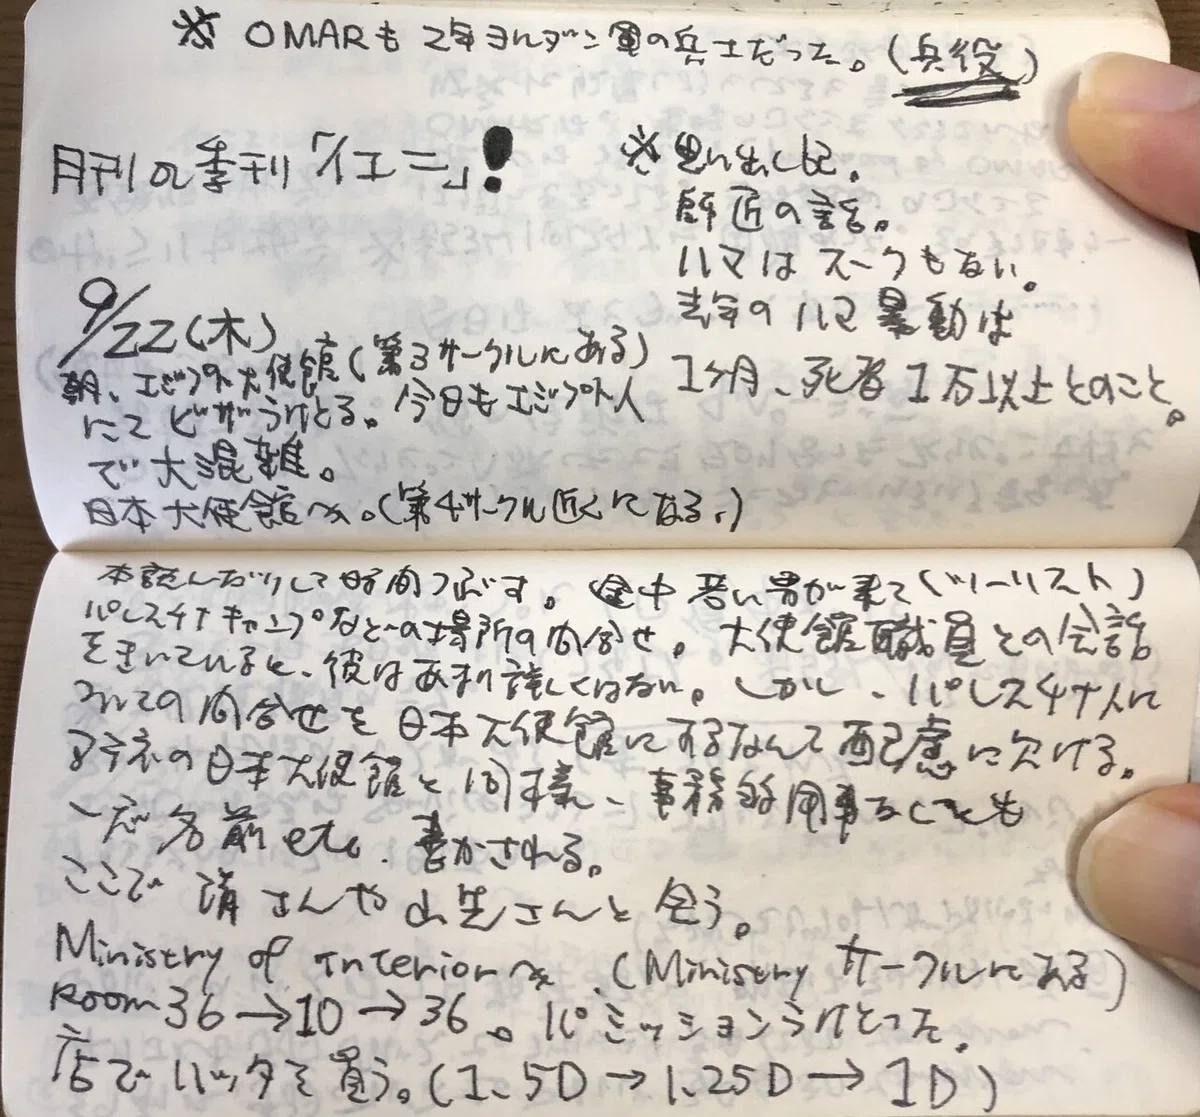 ※ OMARも2年ヨルダン軍の兵士だった。(兵役)
月刊の季刊「イエニ」!
※思い出し記。
師匠の話。
ハマはスークもない。
去年のハマ暴動は
1ヶ月、死者1万以上とのこと。
9/22(木)
朝、エジプト大使館(第3サークルにある)
にてビザうけとる。今日もエジプト人
で大混雑。
日本大使館へ。(第4サークル近くにある。)
本読んだりして時間つぶす。途中若い男が来て(ツーリスト)
パレスチナキャンプなどの場所の問合せ。大使館職員との会話
をきいていると、彼はあまり詳しくはない。しかし、パレスチナ人に
ついての問合せを日本大使館にするなんて配慮に欠ける。
アテネの日本大使館と同様、事務的用事なくとも
一応名前etc.書かされる。
ここで さんや さんと会う。
Ministry of Interiorへ.(Ministryサークルにある)
Room36→10→36。パミッションうけとった。
店でハッタを買う。(1.5D→1.25D→1D)